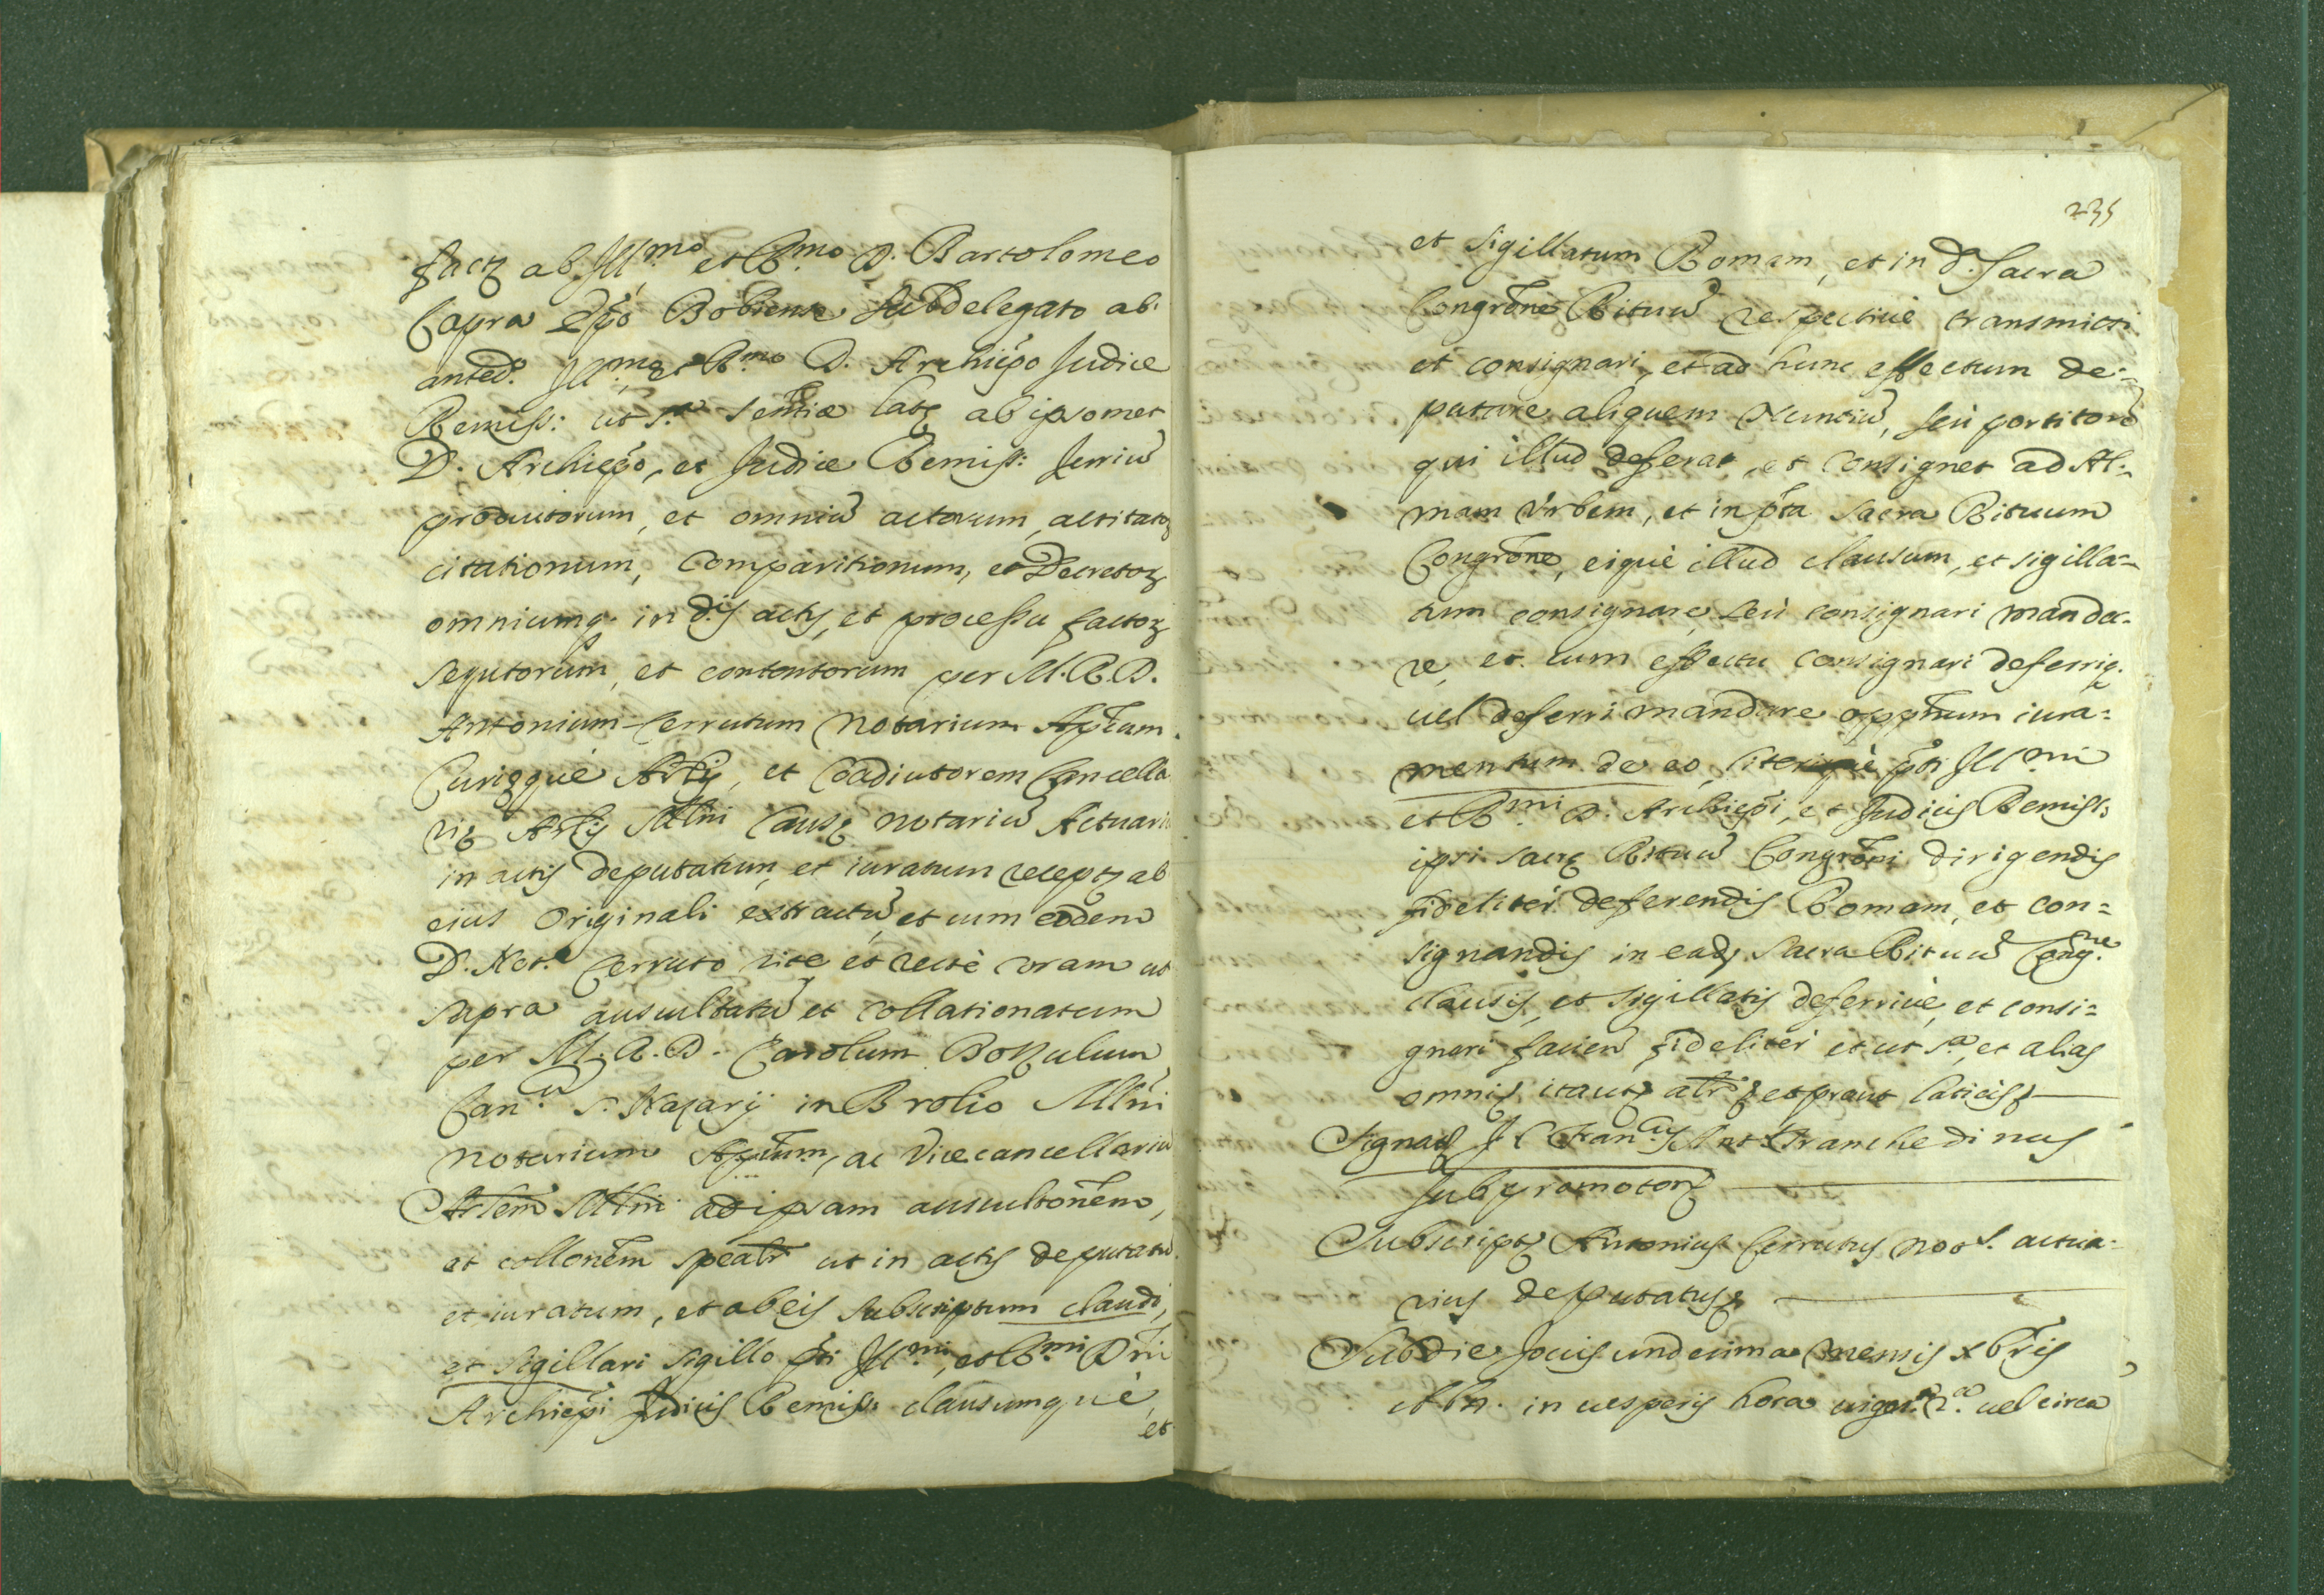 fact ab Ill.mo et R.mo D. Bartolomeo
Capra Ep̃o Bobiense subdelegato ab
anted.o Ill.mo et R.mo D. Archiep̃o Judice
Remiss: ut s.a sentiæ latę ab ipsomet
D. Archiep̃o, et Judice Remiss: Jurium
productorum, et omniũ actorum, actitator
citationum, Comparitionum, et Decretor
omniumq. in d.is actis, et processu factor
sequtorum, et contentorum per M.R.D.
Antonium Cerrutum Notarium Ap̃lcam
Curięquè Arłis, et Coadiutorem Cancella
rię Arłis Młni Causę notariũ Actuariũ
in actis deputatum, et iuratum recept ab
eius Originali extractũ, et cum eodem
D. Not.o Cerruto rite et rectè coram ut
supra auscultatũ et collationatum
per M.R.D. Carolum Bozulum
Can.cũ S. Nazarij in Brolio Młni
notarium Ap̃lcum, ac Vicecancellariũ
Arłem Młni ad ipsam auscultõnem,
et collõnem spealr ut in actis deputatũ
et iuratum, et ab eis subscriptum claudi,
et sigillari sigillo p̃ti Ill.mi, et R.mi D̃ni
Archiep̃i Judicis Remiss: clausumquè,
et
235
et sigillatum Romam, et in d. Sacra
Congr̃one Rituũ respectiuè transmitti
et consignari, et ad hunc effectum de=
putare aliquem Nuntiũ, seù portitorẽ
qui illud deferat, et consignet ad Al=
mam Vrbem, et in p̃ta Sacra Rituum
Congr̃one, eiquè illud clausum, et sigilla=
tum consignare, seù consignari manda=
re, et cum effectu consignari deferriq.
uel deferri mandare opp̃tnum iura=
mentum de eo, literisquè p̃ti Ill.mi
et R.mi D. Archiep̃i, et Judicis Remiss:
ipsi sacrę Rituũ Congr̃oni dirigendis
fideliter deferendis Romam, et con=
signandis in ead. Sacra Rituũ Cong.ne
clausis, et sigillatis deferriuè, et consi=
gnari facien fideliter et ut s.a, et alias
omni, itaut, alr, et prout latius
Signad J C Fran.cus Ant. Tranchedinus
Subpromotor
Subscript Antonius Cerrutus not.s actua=
rius deputatus
Sub die Jouis undecima mensis xbris
Młn. in uesperis hora uiges.a 2.a uel circa